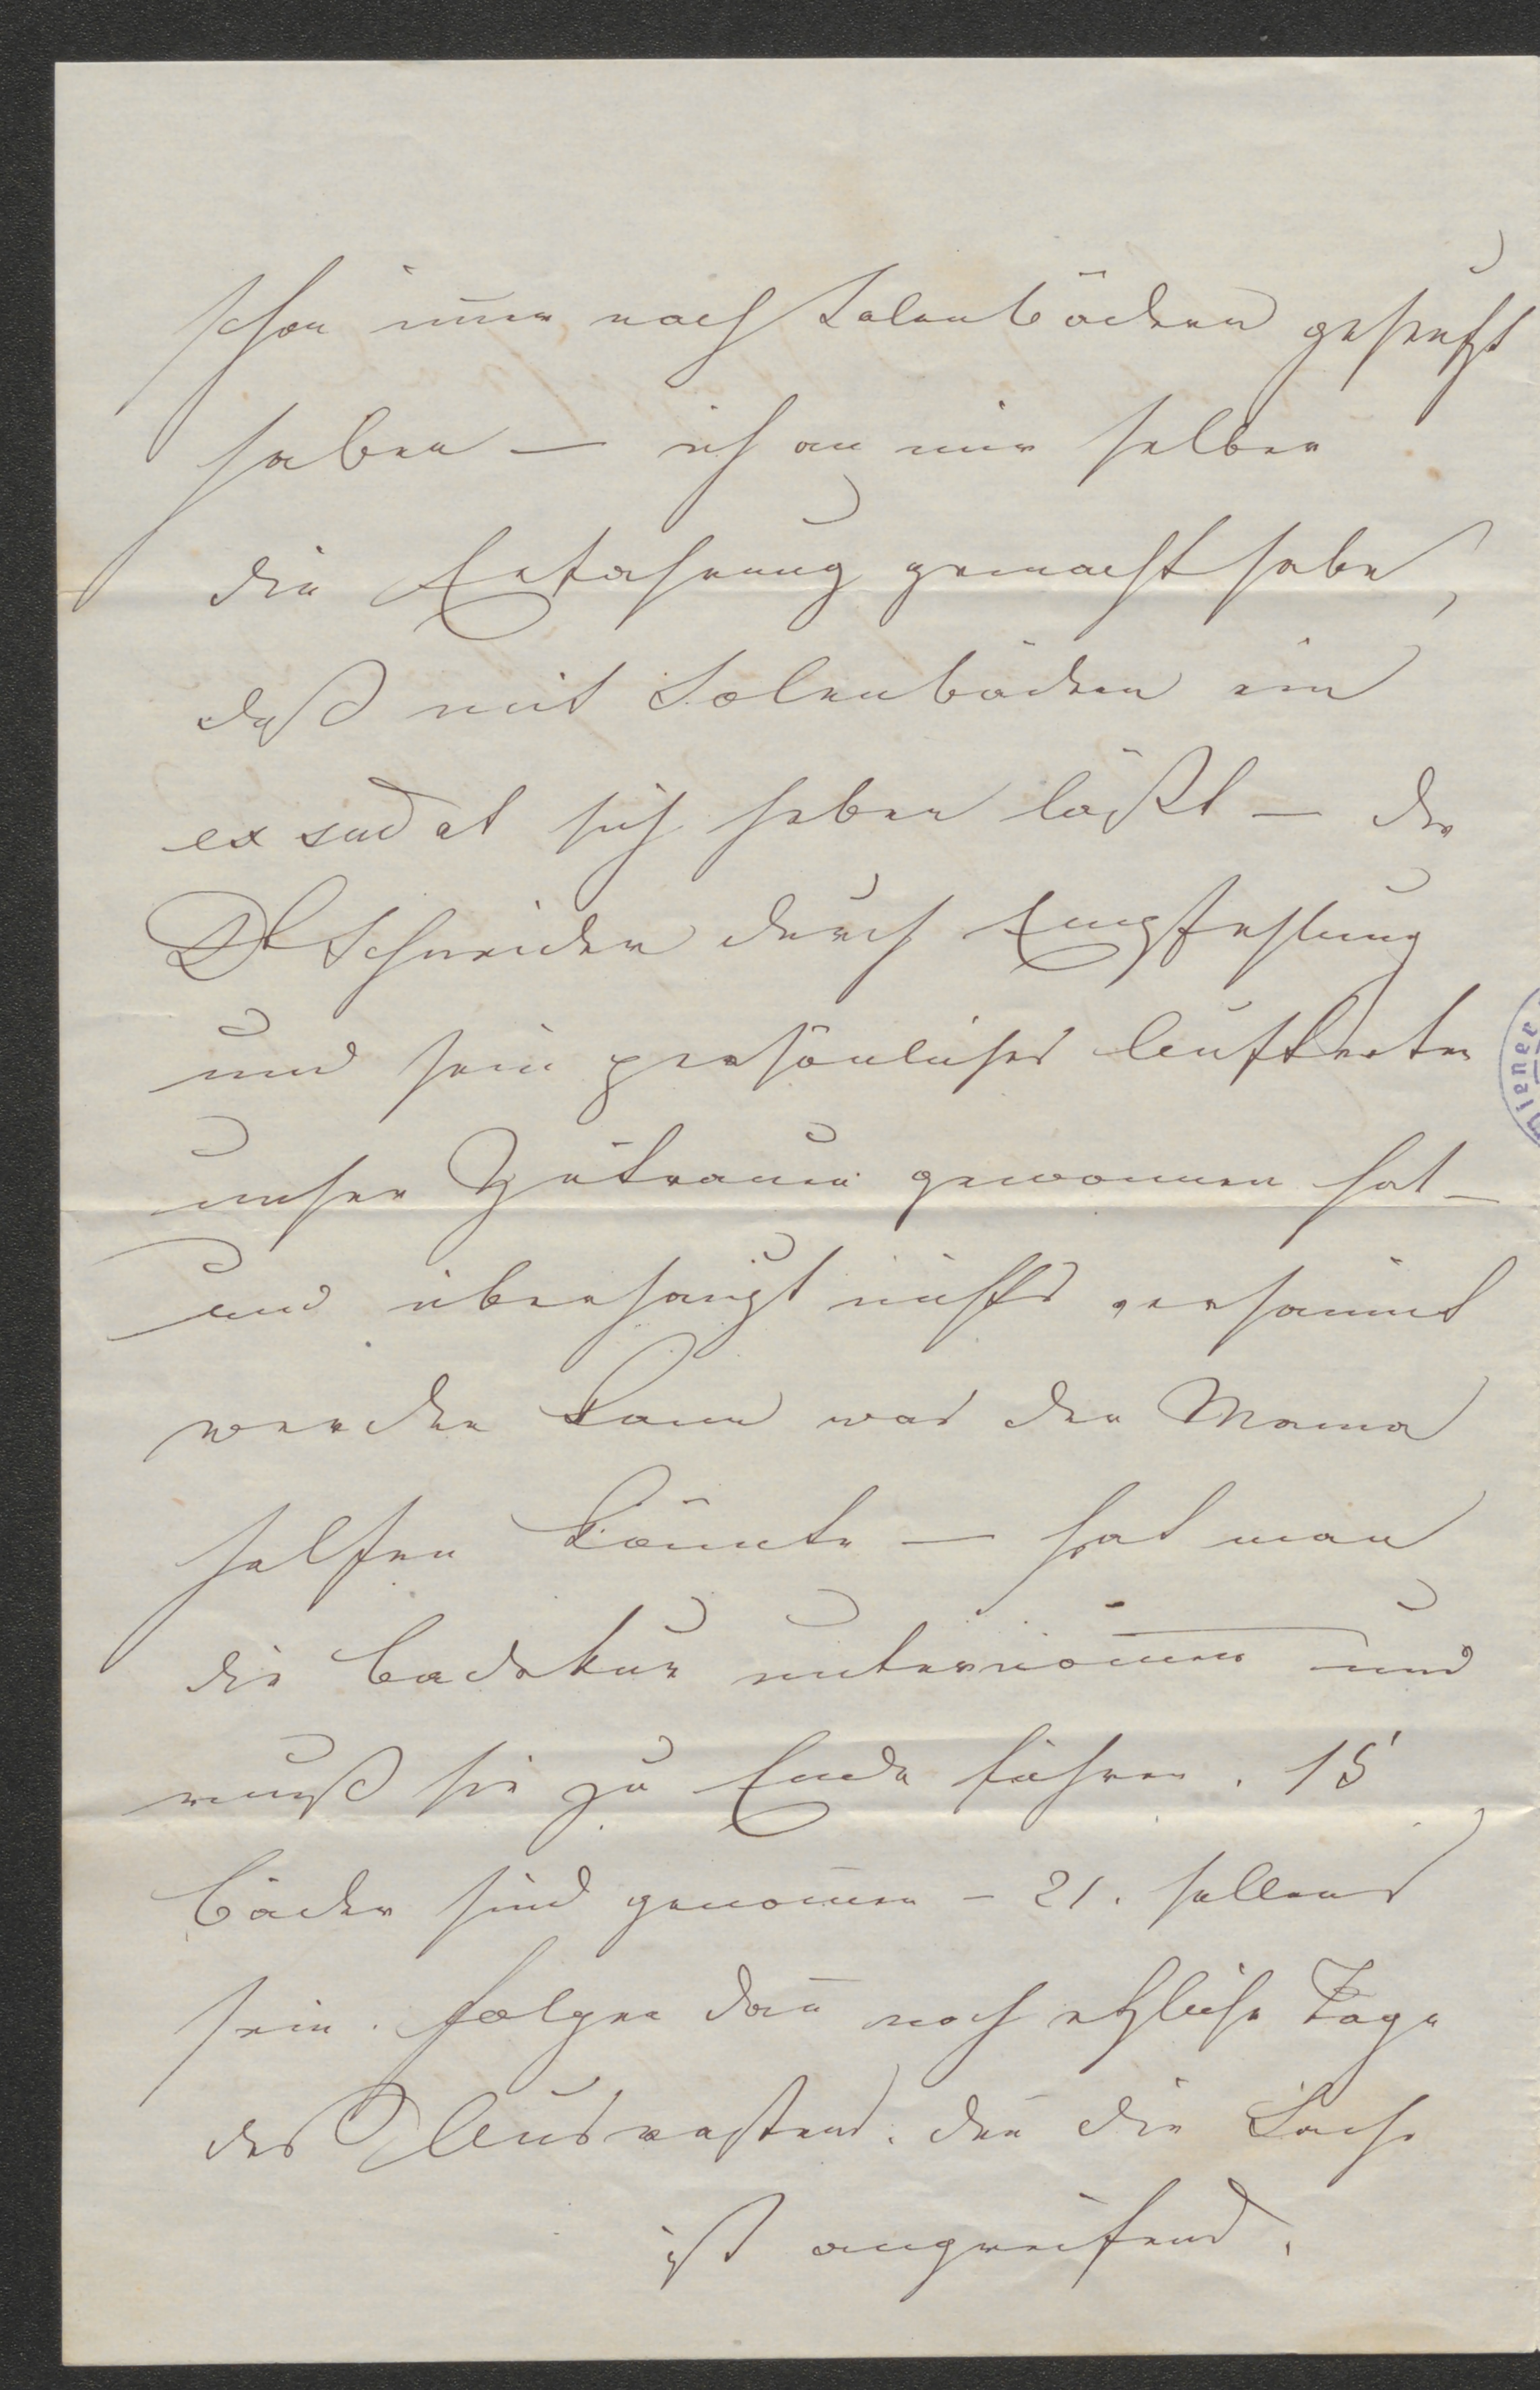 schon im̅er nach Solenbädern geseufzt
haben — ich an mir selber
die Erfahrung gemacht habe,
daß mit Solenbädern ein
exsudat sich heben läßt — der
Dr Schneider durch Empfehlung
und sein persönliches Auftreten
unser Zutrauen gewonnen hat —
und überhaupt nichts versäumt
werden kann was der Mama
helfen könnte — hat man
die Badekur unternom̅en und
muß sie zu Ende führen. 15
Bäder sind genom̅en — 21. sollens
sein. folgen dan̅ noch etzliche Tage
des Ausrastens. den̅ die Sache
ist angreifend.
Wiener